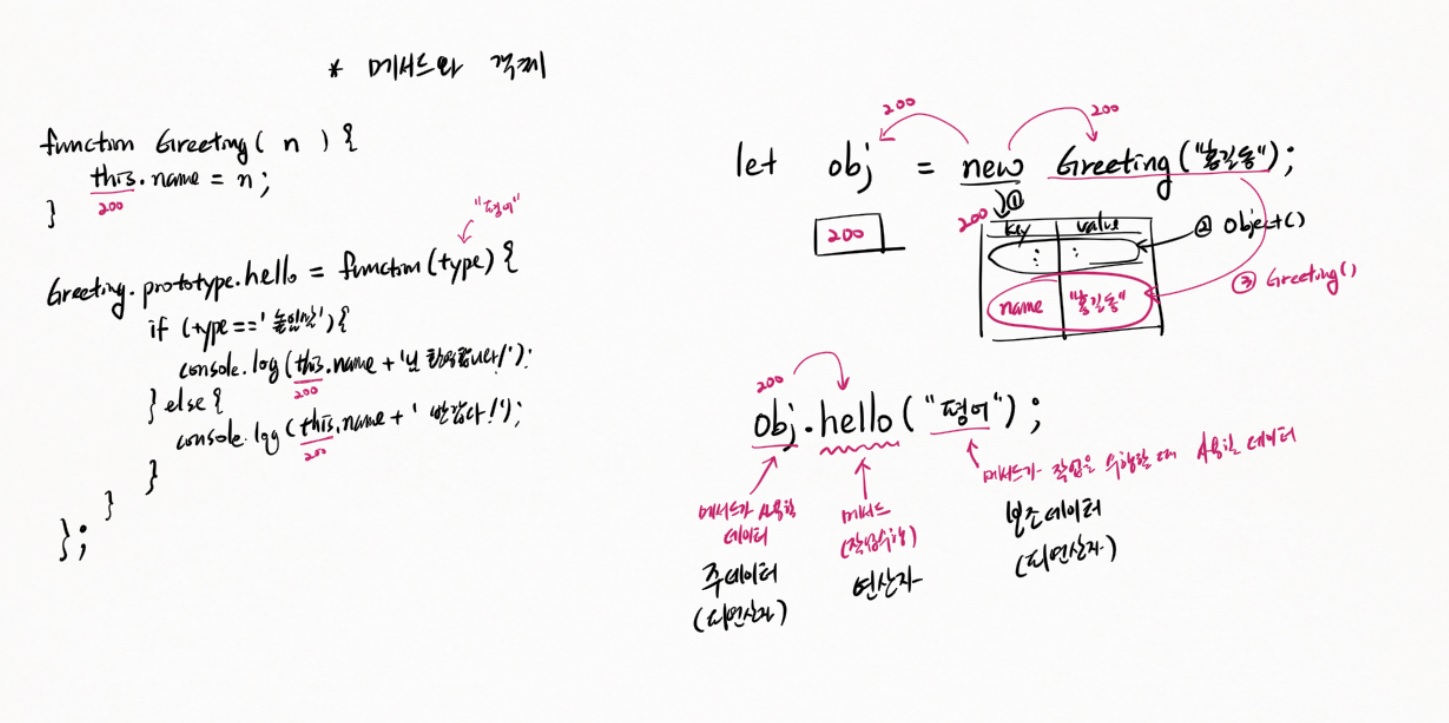 * 메서드와 객체
function Greeting( n ) {
this.name = n;
200
}
"평어"
Greeting.prototype.hello = function(type) {
if (type=='높임말'){
console.log(this.name + '님 환영합니다!');
200
} else {
console.log(this.name + ' 반갑다!');
200
}
}
};
200
200
let obj = new Greeting("홍길동");
①
200
200
key value
: :
② Object()
name "홍길동"
③ Greeting()
200
obj.hello("평어");
메서드가 사용할
데이터
주데이터
(피연산자)
메서드
(작업수행)
연산자
메서드가 작업을 수행할 때 사용할 데이터
보조데이터
(피연산자)